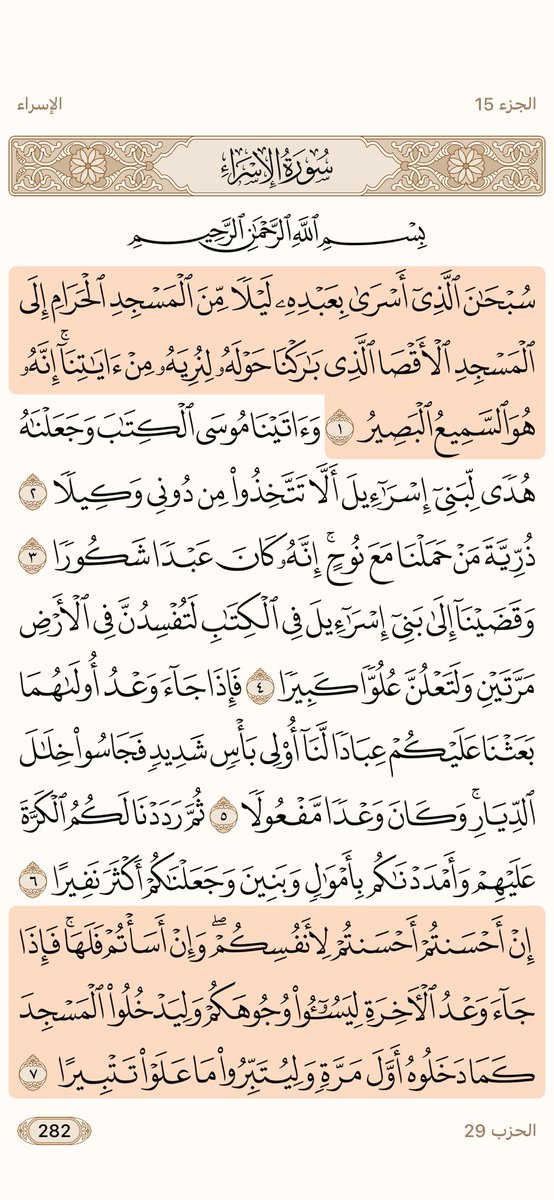 الجزء 15
الإسراء
سُورَةُ الإِسْرَاءِ
بِسْمِ ٱللَّهِ ٱلرَّحْمَٰنِ ٱلرَّحِيمِ
سُبْحَٰنَ ٱلَّذِىٓ أَسْرَىٰ بِعَبْدِهِۦ لَيْلًا مِّنَ ٱلْمَسْجِدِ ٱلْحَرَامِ إِلَى
ٱلْمَسْجِدِ ٱلْأَقْصَا ٱلَّذِى بَٰرَكْنَا حَوْلَهُۥ لِنُرِيَهُۥ مِنْ ءَايَٰتِنَآۚ إِنَّهُۥ
هُوَ ٱلسَّمِيعُ ٱلْبَصِيرُ ١ وَءَاتَيْنَا مُوسَى ٱلْكِتَٰبَ وَجَعَلْنَٰهُ
هُدًى لِّبَنِىٓ إِسْرَٰٓءِيلَ أَلَّا تَتَّخِذُوا۟ مِن دُونِى وَكِيلًا ٢
ذُرِّيَّةَ مَنْ حَمَلْنَا مَعَ نُوحٍۚ إِنَّهُۥ كَانَ عَبْدًا شَكُورًا ٣
وَقَضَيْنَآ إِلَىٰ بَنِىٓ إِسْرَٰٓءِيلَ فِى ٱلْكِتَٰبِ لَتُفْسِدُنَّ فِى ٱلْأَرْضِ
مَرَّتَيْنِ وَلَتَعْلُنَّ عُلُوًّا كَبِيرًا ٤ فَإِذَا جَآءَ وَعْدُ أُولَىٰهُمَا
بَعَثْنَا عَلَيْكُمْ عِبَادًا لَّنَآ أُو۟لِى بَأْسٍ شَدِيدٍ فَجَاسُوا۟ خِلَٰلَ
ٱلدِّيَارِۚ وَكَانَ وَعْدًا مَّفْعُولًا ٥ ثُمَّ رَدَدْنَا لَكُمُ ٱلْكَرَّةَ
عَلَيْهِمْ وَأَمْدَدْنَٰكُم بِأَمْوَٰلٍ وَبَنِينَ وَجَعَلْنَٰكُمْ أَكْثَرَ نَفِيرًا ٦
إِنْ أَحْسَنتُمْ أَحْسَنتُمْ لِأَنفُسِكُمْۖ وَإِنْ أَسَأْتُمْ فَلَهَاۚ فَإِذَا
جَآءَ وَعْدُ ٱلْءَاخِرَةِ لِيَسُـۥٓـُٔوا۟ وُجُوهَكُمْ وَلِيَدْخُلُوا۟ ٱلْمَسْجِدَ
كَمَا دَخَلُوهُ أَوَّلَ مَرَّةٍ وَلِيُتَبِّرُوا۟ مَا عَلَوْا۟ تَتْبِيرًا ٧
الحزب 29
282